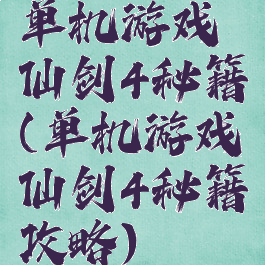 单机游戏
仙剑4秘籍
(单机游戏
仙剑4秘籍
攻略)